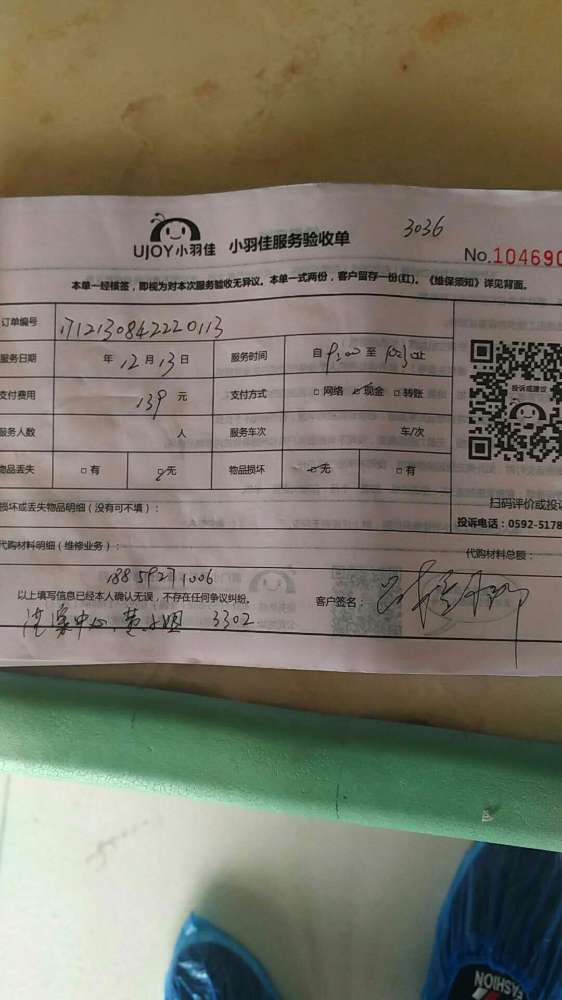 3036
UJOY小羽佳 小羽佳服务验收单
No.104690
本单一经核签，即视为对本次服务验收无异议。本单一式两份，客户留存一份(红)。《维保须知》详见背面。
订单编号 1712130842220113
服务日期 年12月13日 服务时间 自9:00至 止
支付费用 139元 支付方式 □网络 ☑现金 □转账
服务人数 人 服务车次 车/次
物品丢失 □有 ☑无 物品损坏 ☑无 □有
投诉或建议
损坏或丢失物品明细（没有可不填）：
扫码评价或投诉
投诉电话：0592-5178
代购材料明细（维修业务）：
代购材料总额：
18859271006
以上填写信息已经本人确认无误，不存在任何争议纠纷。
客户签名：
中心 黄小姐 3302
FASHION